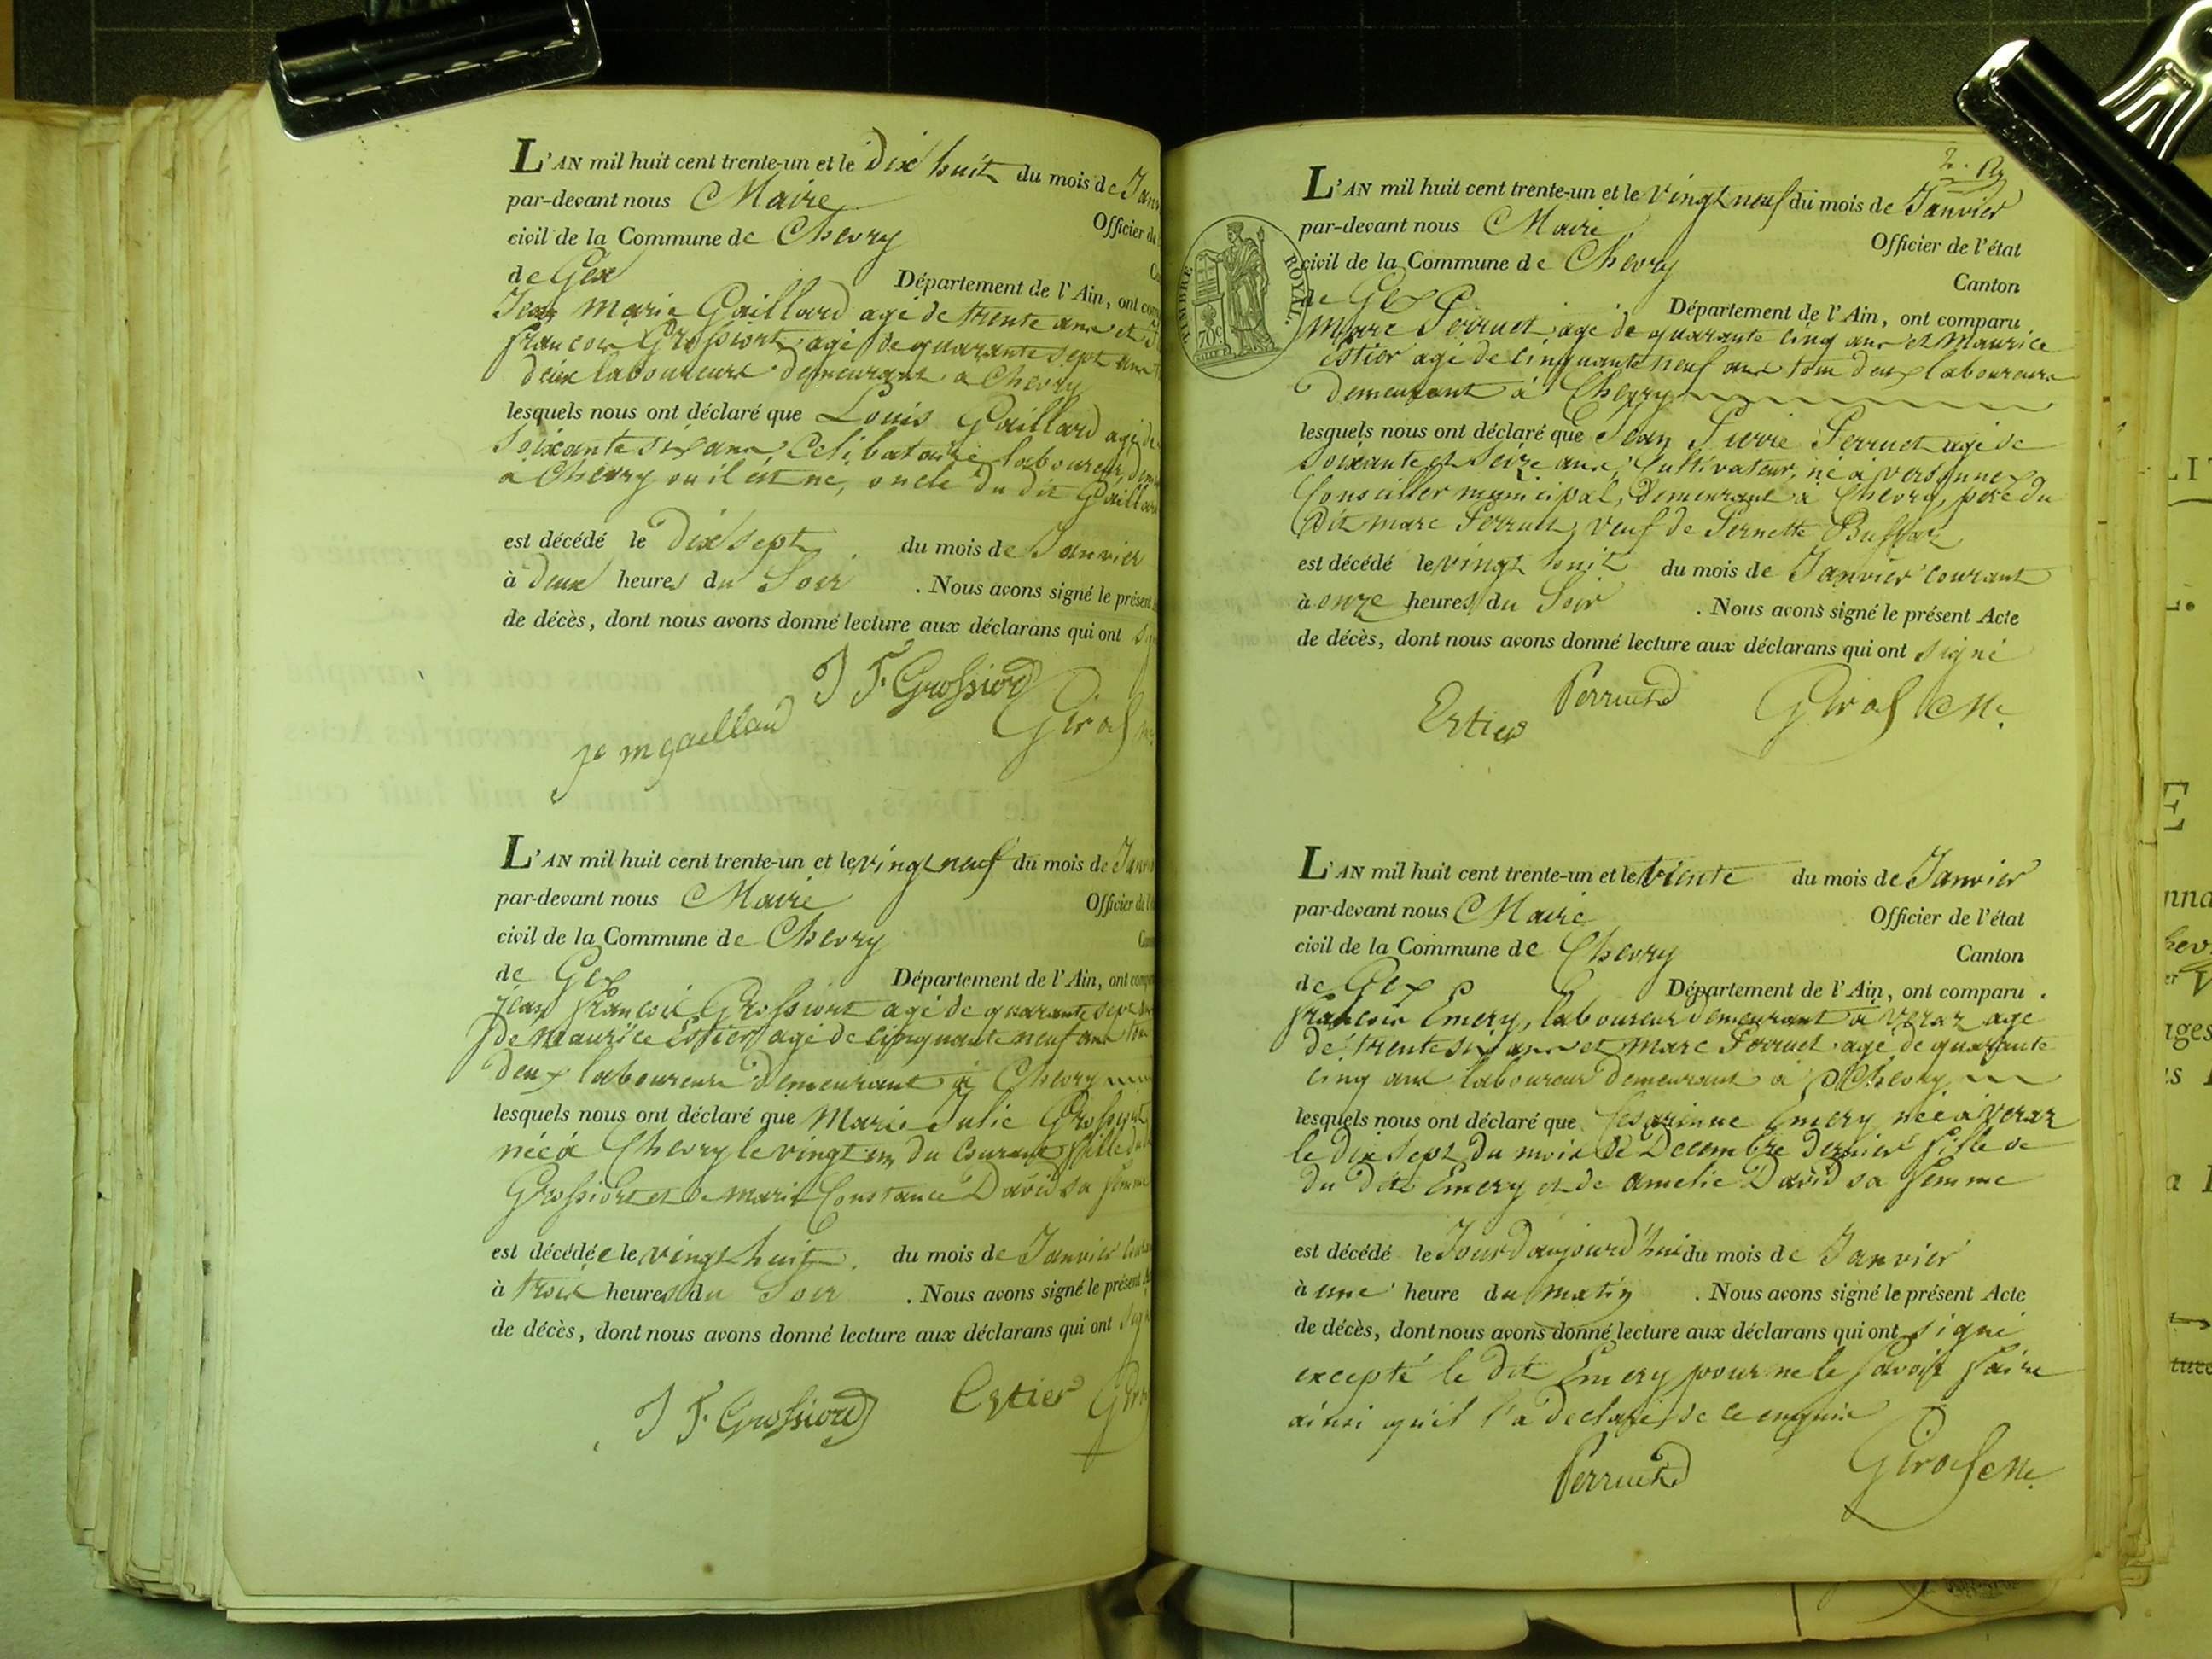 L'AN mil huit cent trente-un et le dix huit du mois de Janv
par-devant nous Maire Officier de
civil de la Commune de Chevry
de Gex Département de l'Ain, ont com
Jean Marie Gaillard agé de trente ans et
françois Grossiort agé de quarante sept ans
deux laboureurs demeurant a Chevry
lesquels nous ont déclaré que Louis Gaillard agé de
soixante six ans, Celibataire laboureur, dem
à Chevry ou il est né, oncle du dit Gaillard
est décédé le dix sept du mois de Janvier
à deux heures du Soir . Nous avons signé le présent
de décès, dont nous avons donné lecture aux déclarans qui ont sig
J F. Grossiord
je m gaillard Girod
L'AN mil huit cent trente-un et le vingt neuf du mois de Janv
par-devant nous Maire Officier de l'
civil de la Commune de Chevry
de Gex Département de l'Ain, ont comp
jean françois Grossiort agé de quarante sept
de Maurice Estier agé de cinquante neuf ans tous
deux laboureurs demeurant à Chevry
lesquels nous ont déclaré que Marie Julie Grossiort
née à Chevry le vingt un du Courant fille du
Grossiort et de marie Constance David sa femme
est décédée le vingt huit du mois de Janvier Cour
à trois heures du Soir . Nous avons signé le présent
de décès, dont nous avons donné lecture aux déclarans qui ont sign
J F. Grossiord Estier
2.
L'AN mil huit cent trente-un et le vingt neuf du mois de Janvier
par-devant nous Maire Officier de l'état
civil de la Commune de Chevry Canton
de Gex Département de l'Ain, ont comparu
TIMBRE ROYAL.
70c
Marc Perruet agé de quarante cinq ans et Maurice
Estier agé de cinquante neuf ans tous deux laboureurs
demeurant à Chevry
lesquels nous ont déclaré que Jean Pierre Perruet agé de
soixante et seize ans, Cultivateur, né à versonnex
Conseiller municipal, demeurant à Chevry, père du
dit marc Perruet, veuf de Pernette Buffaz
est décédé le vingt huit du mois de Janvier courant
à onze heures du Soir . Nous avons signé le présent Acte
de décès, dont nous avons donné lecture aux déclarans qui ont signé
Estier Perruet Girod Me.
L'AN mil huit cent trente-un et le trente du mois de Janvier
par-devant nous Maire Officier de l'état
civil de la Commune de Chevry Canton
de Gex Département de l'Ain, ont comparu .
françois Emery, laboureur demeurant à Veraz age
de trente six ans et marc Perruet agé de quarante
cinq ans laboureur demeurant à Chevry
lesquels nous ont déclaré que Cesarinne Emery née à Veraz
le dix sept du mois de Decembre dernier fille de
du dit Emery et de amelie David sa femme
est décédé le Jour d'aujourd'hui du mois de Janvier
à une heure du matin . Nous avons signé le présent Acte
de décès, dont nous avons donné lecture aux déclarans qui ont signé
excepté le dit Emery pour ne le savoir faire
ainsi qu'il l'a declaré de ce enquis
Perruet Girod Me.